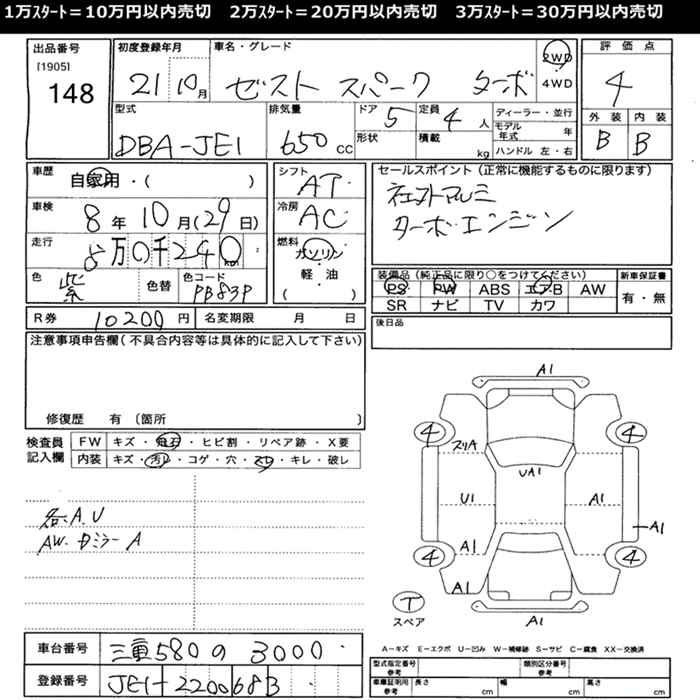 1万ｽﾀｰﾄ＝10万円以内売切　2万ｽﾀｰﾄ＝20万円以内売切　3万ｽﾀｰﾄ＝30万円以内売切
出品番号
[1905]
148
初度登録年月
21 10月
車名・グレード
ゼスト スパーク ターボ
2WD
4WD
評価点
4
外装 内装
B B
型式
DBA-JE1
排気量
650 CC
ドア 5
形状
定員 4 人
積載 kg
ディーラー・並行
モデル年式 年
ハンドル 左・右
車歴
自家用・( )
シフト
AT
セールスポイント（正常に機能するものに限ります）
ターボエンジン
車検
8年10月(29日)
冷房
AC
走行
8万0千240km
燃料
ガソリン
軽・油
( )
色
紫
色替
色コード
PB83P
装備品（純正品に限り○をつけてください）
PS PW ABS エアB AW
SR ナビ TV カワ
新車保証書
有・無
R券 10200円
名変期限 月 日
後日品
注意事項申告欄（不具合内容等は具体的に記入して下さい）
修復歴 有〔箇所 〕
検査員記入欄
FW キズ・飛石・ヒビ割・リペア跡・X要
内装 キズ・汚レ・コゲ・穴・スレ・キレ・破レ
各A.U
AW. Dミラー A
A1
4 4
スリA
UA1
U1 A1
A1
A1
4 4
A1
T
スペア
A1
A-キズ E-エクボ U-凹み W-補修跡 S-サビ C-腐食 XX-交換済
車台番号 三重580の3000
登録番号 JE1-2200683
型式指定番号 参考
類別区分番号 参考
車庫証明用 参考 長さ cm 幅 cm 高さ cm